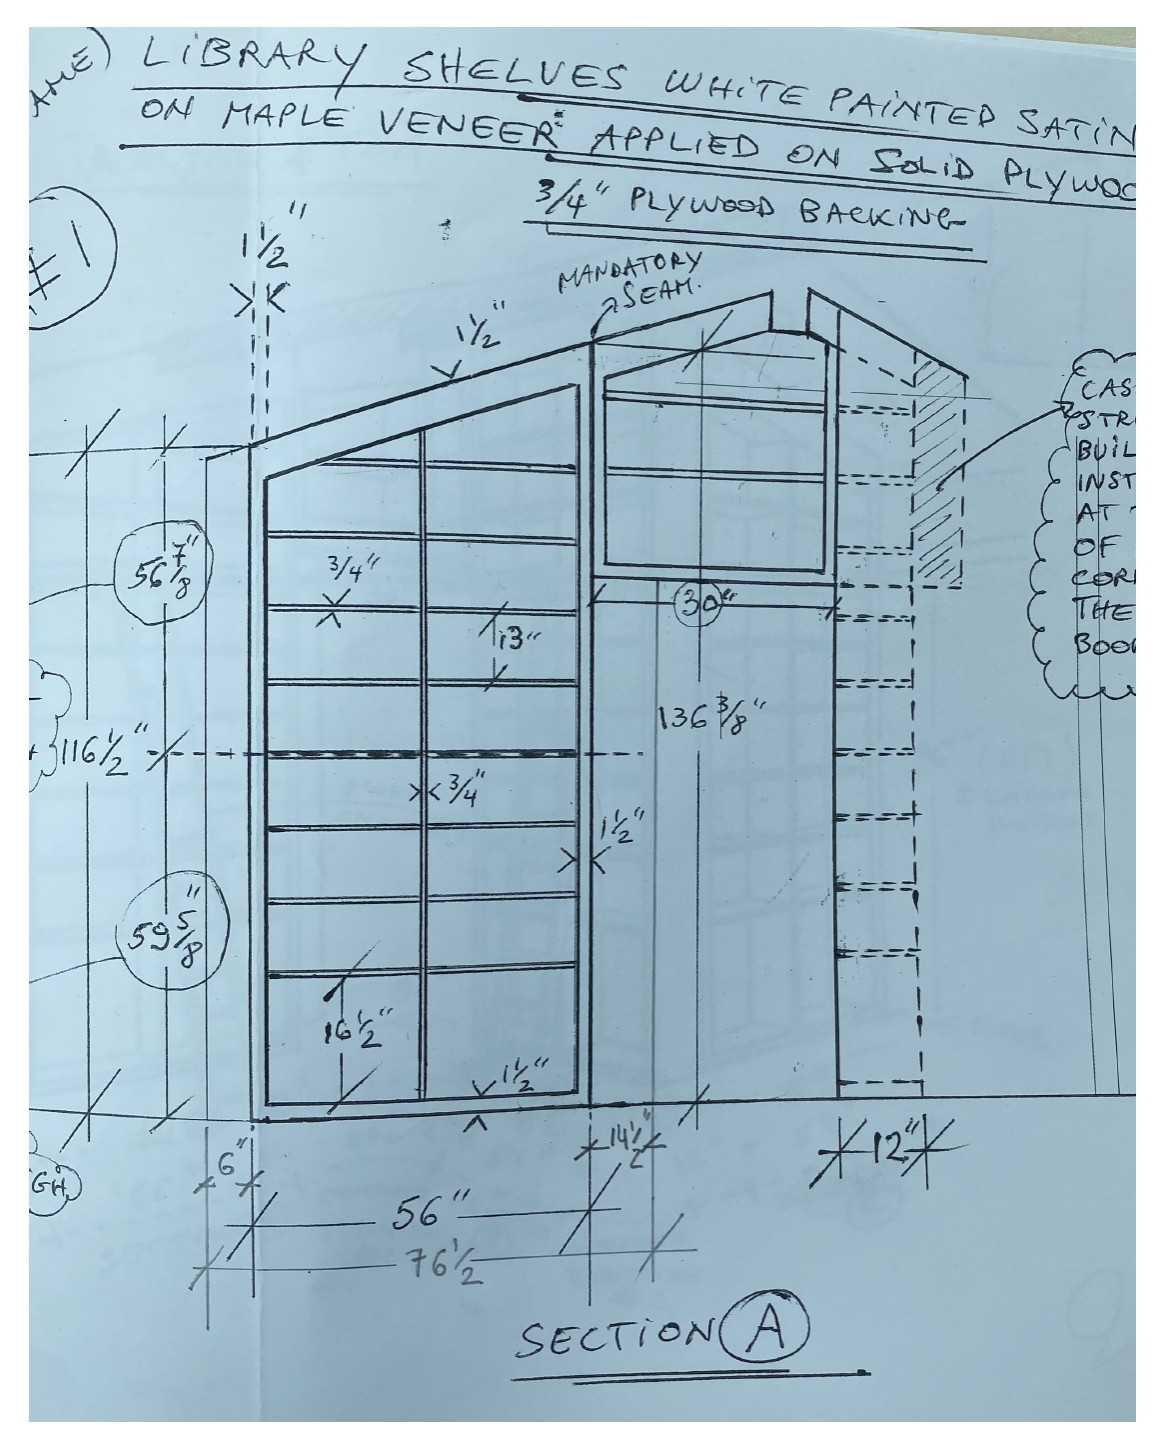 AME)
LIBRARY SHELVES WHITE PAINTED SATIN
ON MAPLE VENEER: APPLIED ON SOLID PLYWOO
3/4" PLYWOOD BACKING
1 1/2"
#1
MANDATORY
SEAM.
1 1/2"
CAS
STR
BUIL
INST
AT T
OF
COR
THE
BOO
56 7/8"
3/4"
13"
30"
136 3/8"
116 1/2"
3/4"
1 1/2"
59 5/8"
16 1/2"
1 1/2"
GH
6"
14 1/2"
12"
56"
76 1/2
SECTION A